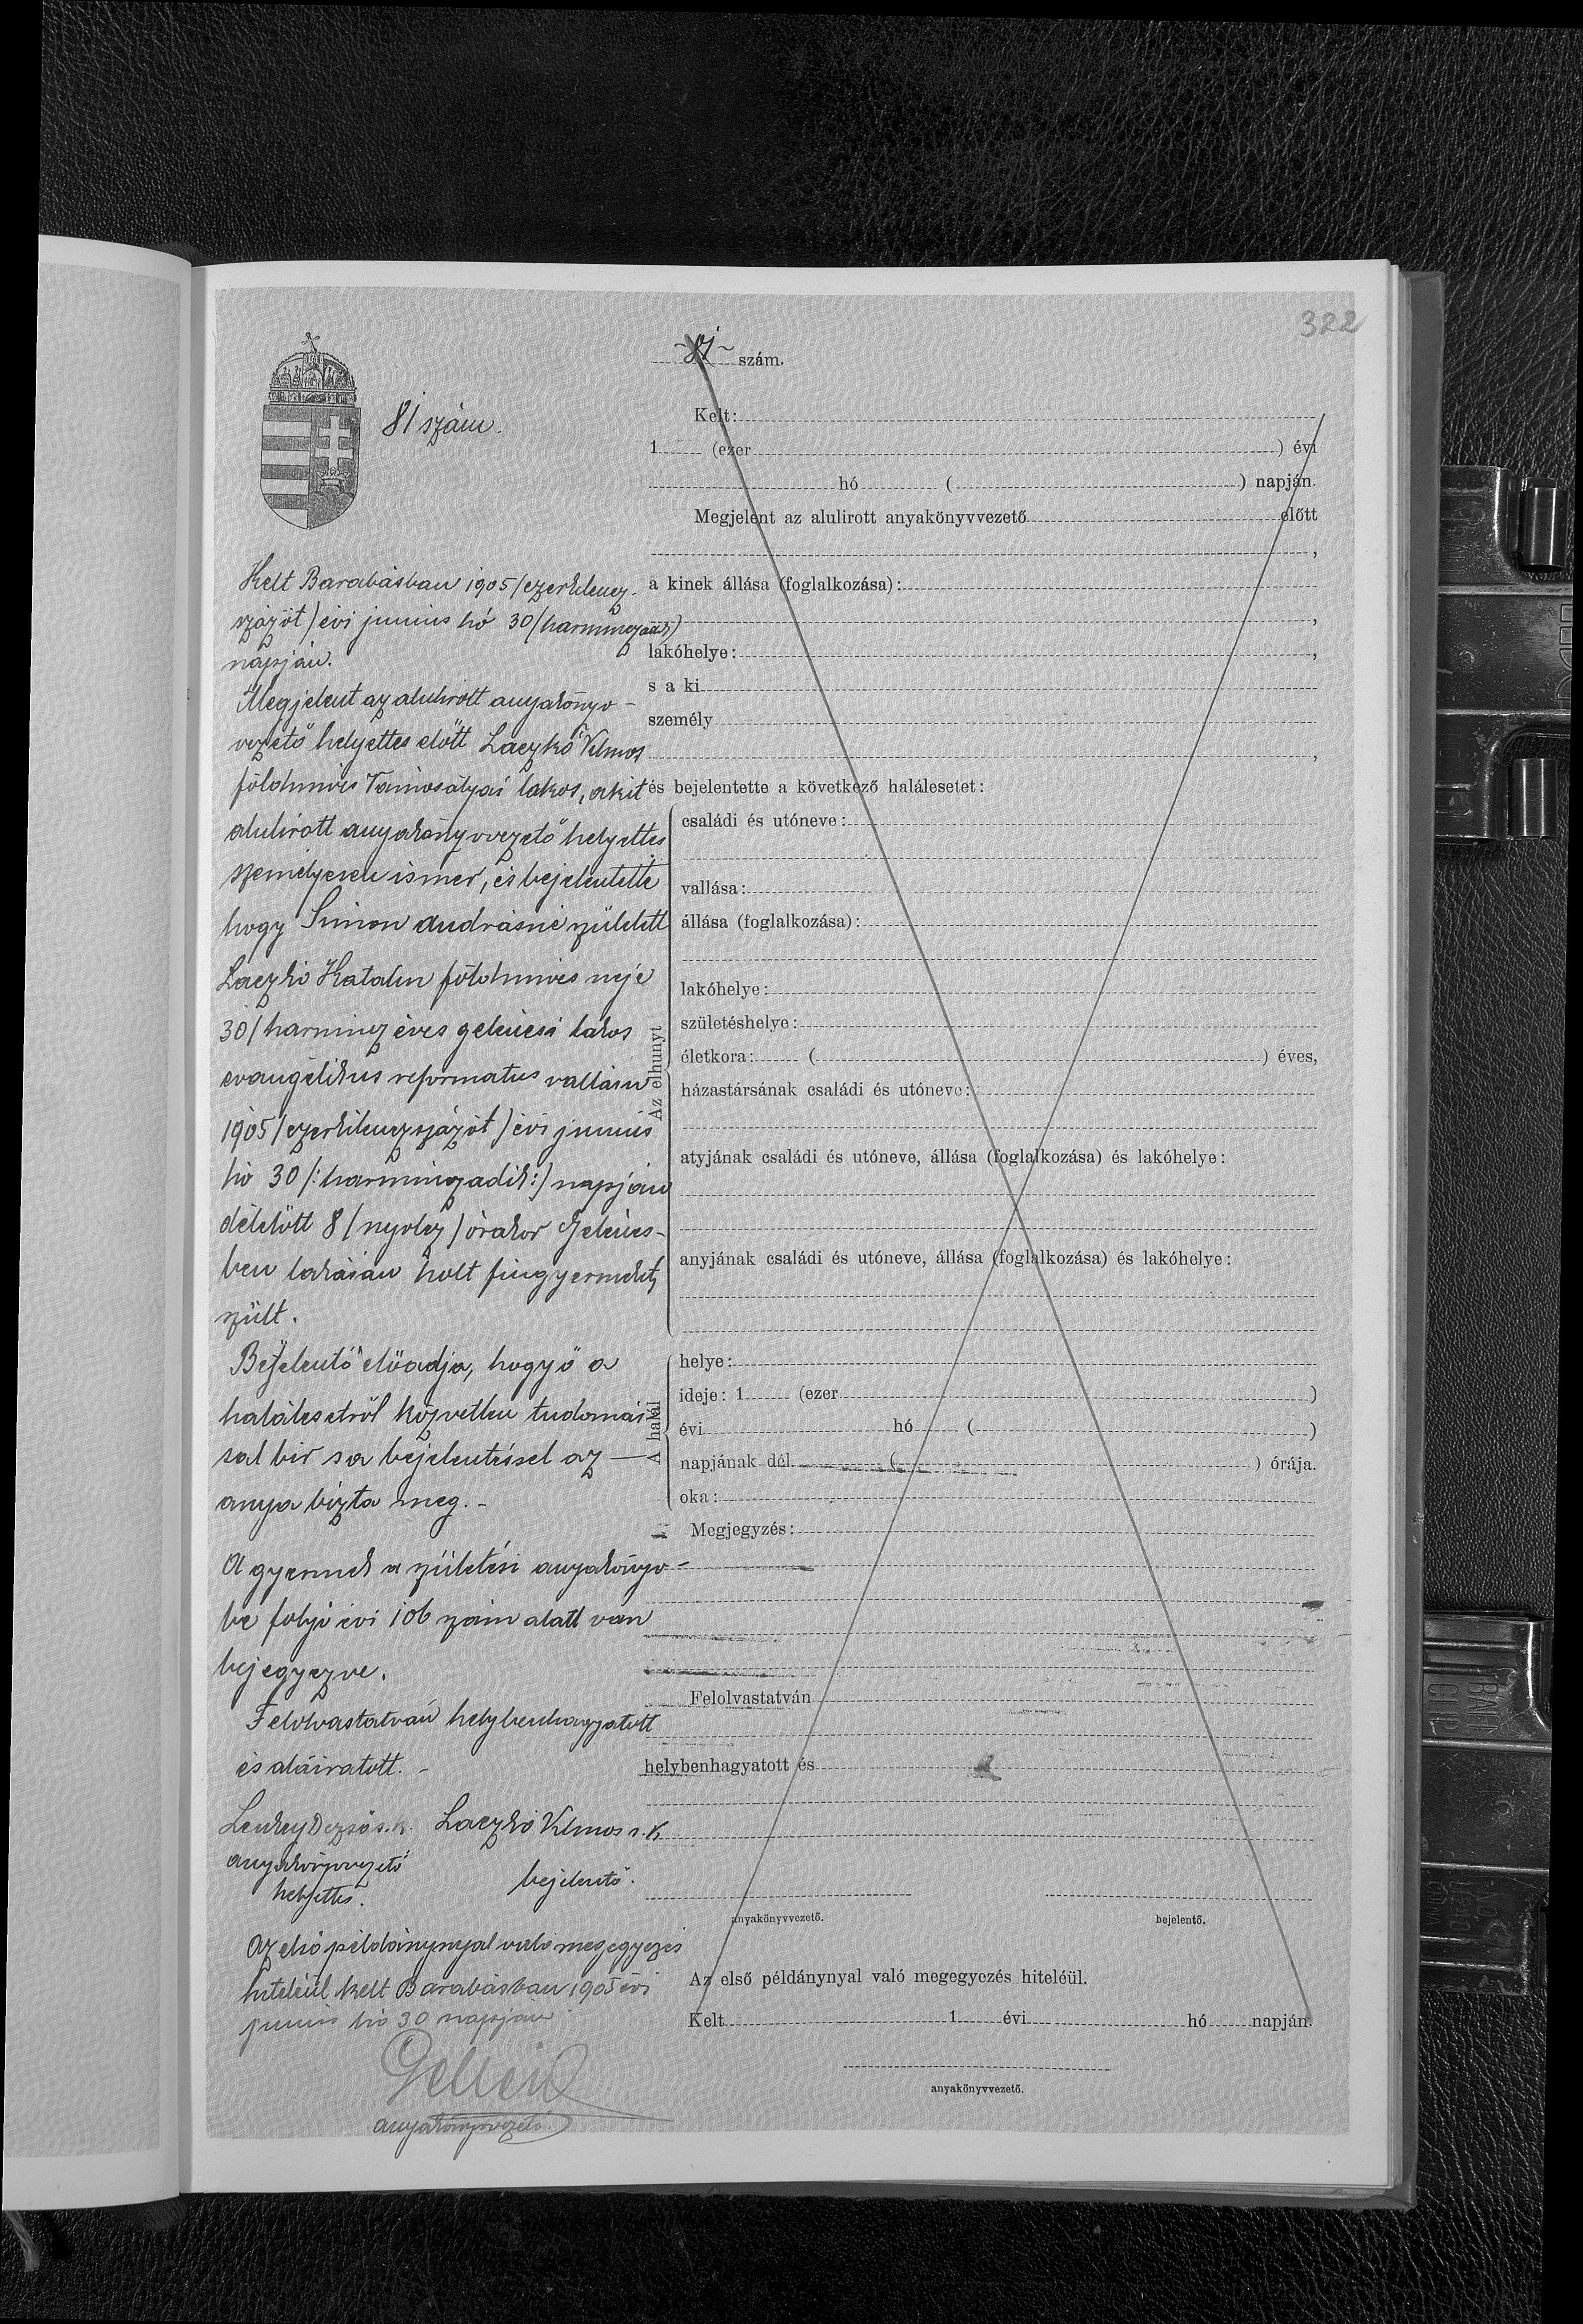 322
81 szám.
81 szám.
Kelt:
1 (ezer ) évi
hó ( ) napján.
Megjelent az alulirott anyakönyvvezető előtt
,
a kinek állása (foglalkozása):
,
lakóhelye: ,
s a ki
személy
,
és bejelentette a következő halálesetet:
Az elhunyt
családi és utóneve:
vallása:
állása (foglalkozása):
lakóhelye:
születéshelye:
életkora: ( ) éves,
házastársának családi és utóneve:
atyjának családi és utóneve, állása (foglalkozása) és lakóhelye:
anyjának családi és utóneve, állása (foglalkozása) és lakóhelye:
A halál
helye:
ideje: 1 (ezer )
évi hó ( )
napjának dél ( ) órája.
oka:
Megjegyzés:
Felolvastatván
helybenhagyatott és
anyakönyvvezető. bejelentő.
Az első példánynyal való megegyezés hiteléül.
Kelt 1 évi hó napján.
anyakönyvvezető.
Kelt Barabásban 1905 (ezerkilencz-
százöt) évi junius hó 30 (harminczadik)
napján.
Megjelent az alulirott anyakönyv-
vezető helyettes előtt Laczkó Vilmos
földmives lakos, akit
alulirott anyakönyvvezető helyettes
személyesen ismer, és bejelentette
hogy Simon Andrásné született
Laczkó Katalin földmives neje
30 (harmincz éves gelénesi lakos
evangélikus reformatus vallásu
1905 (ezerkilenczszázöt) évi junius
hó 30 (:harminczadik:) napján
délelőtt 8 (nyolcz) órakor Gelénes-
ben lakásán holt fiugyermeket
szült.
Bejelentő előadja, hogy ő a
halálesetről közvetlen tudomás
sal bir s a bejelentéssel az —
anya bizta meg. -
A gyermek a születési anyakönyv-
be folyó évi 106 szám alatt van
bejegyezve.
Felolvastatván helybenhagyatott
és aláiratott. -
Dezső s.k. Laczkó Vilmos s.k.
anyakönyvvezető
helyettes. bejelentő.
Az első példánynyal való megegyezés
hiteléül kelt Barabásban 1905 évi
junius hó 30 napján
anyakönyvvezető.